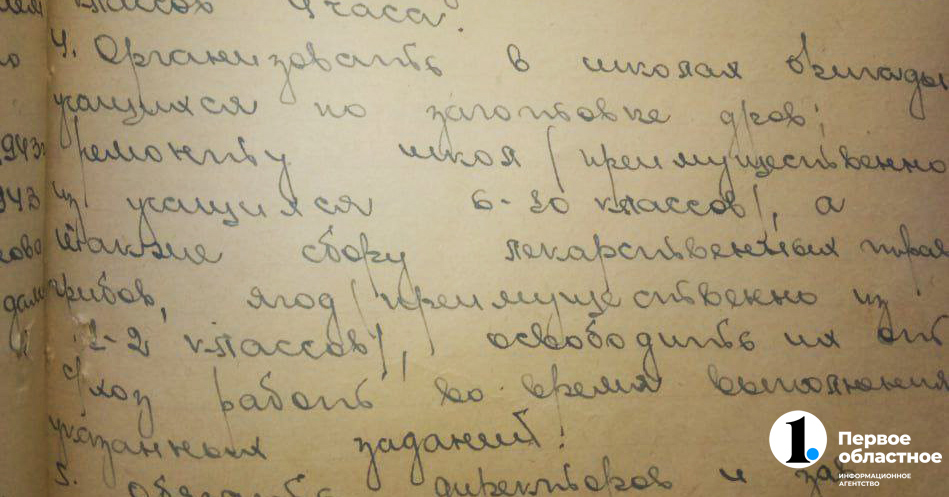 классов 4 часа.
4. Организовать в школах бригады
учащихся по заготовке дров,
1943 ремонту школ /преимущественно
1943 из учащихся 6-10 классов/, а
также сбору лекарственных трав
грибов, ягод /преимущественно из
1-2 классов/, освободить их от
с/хоз работ во время выполнения
указанных заданий.
5. директоров и зав
1.
Первое
областное
ИНФОРМАЦИОННОЕ
АГЕНТСТВО